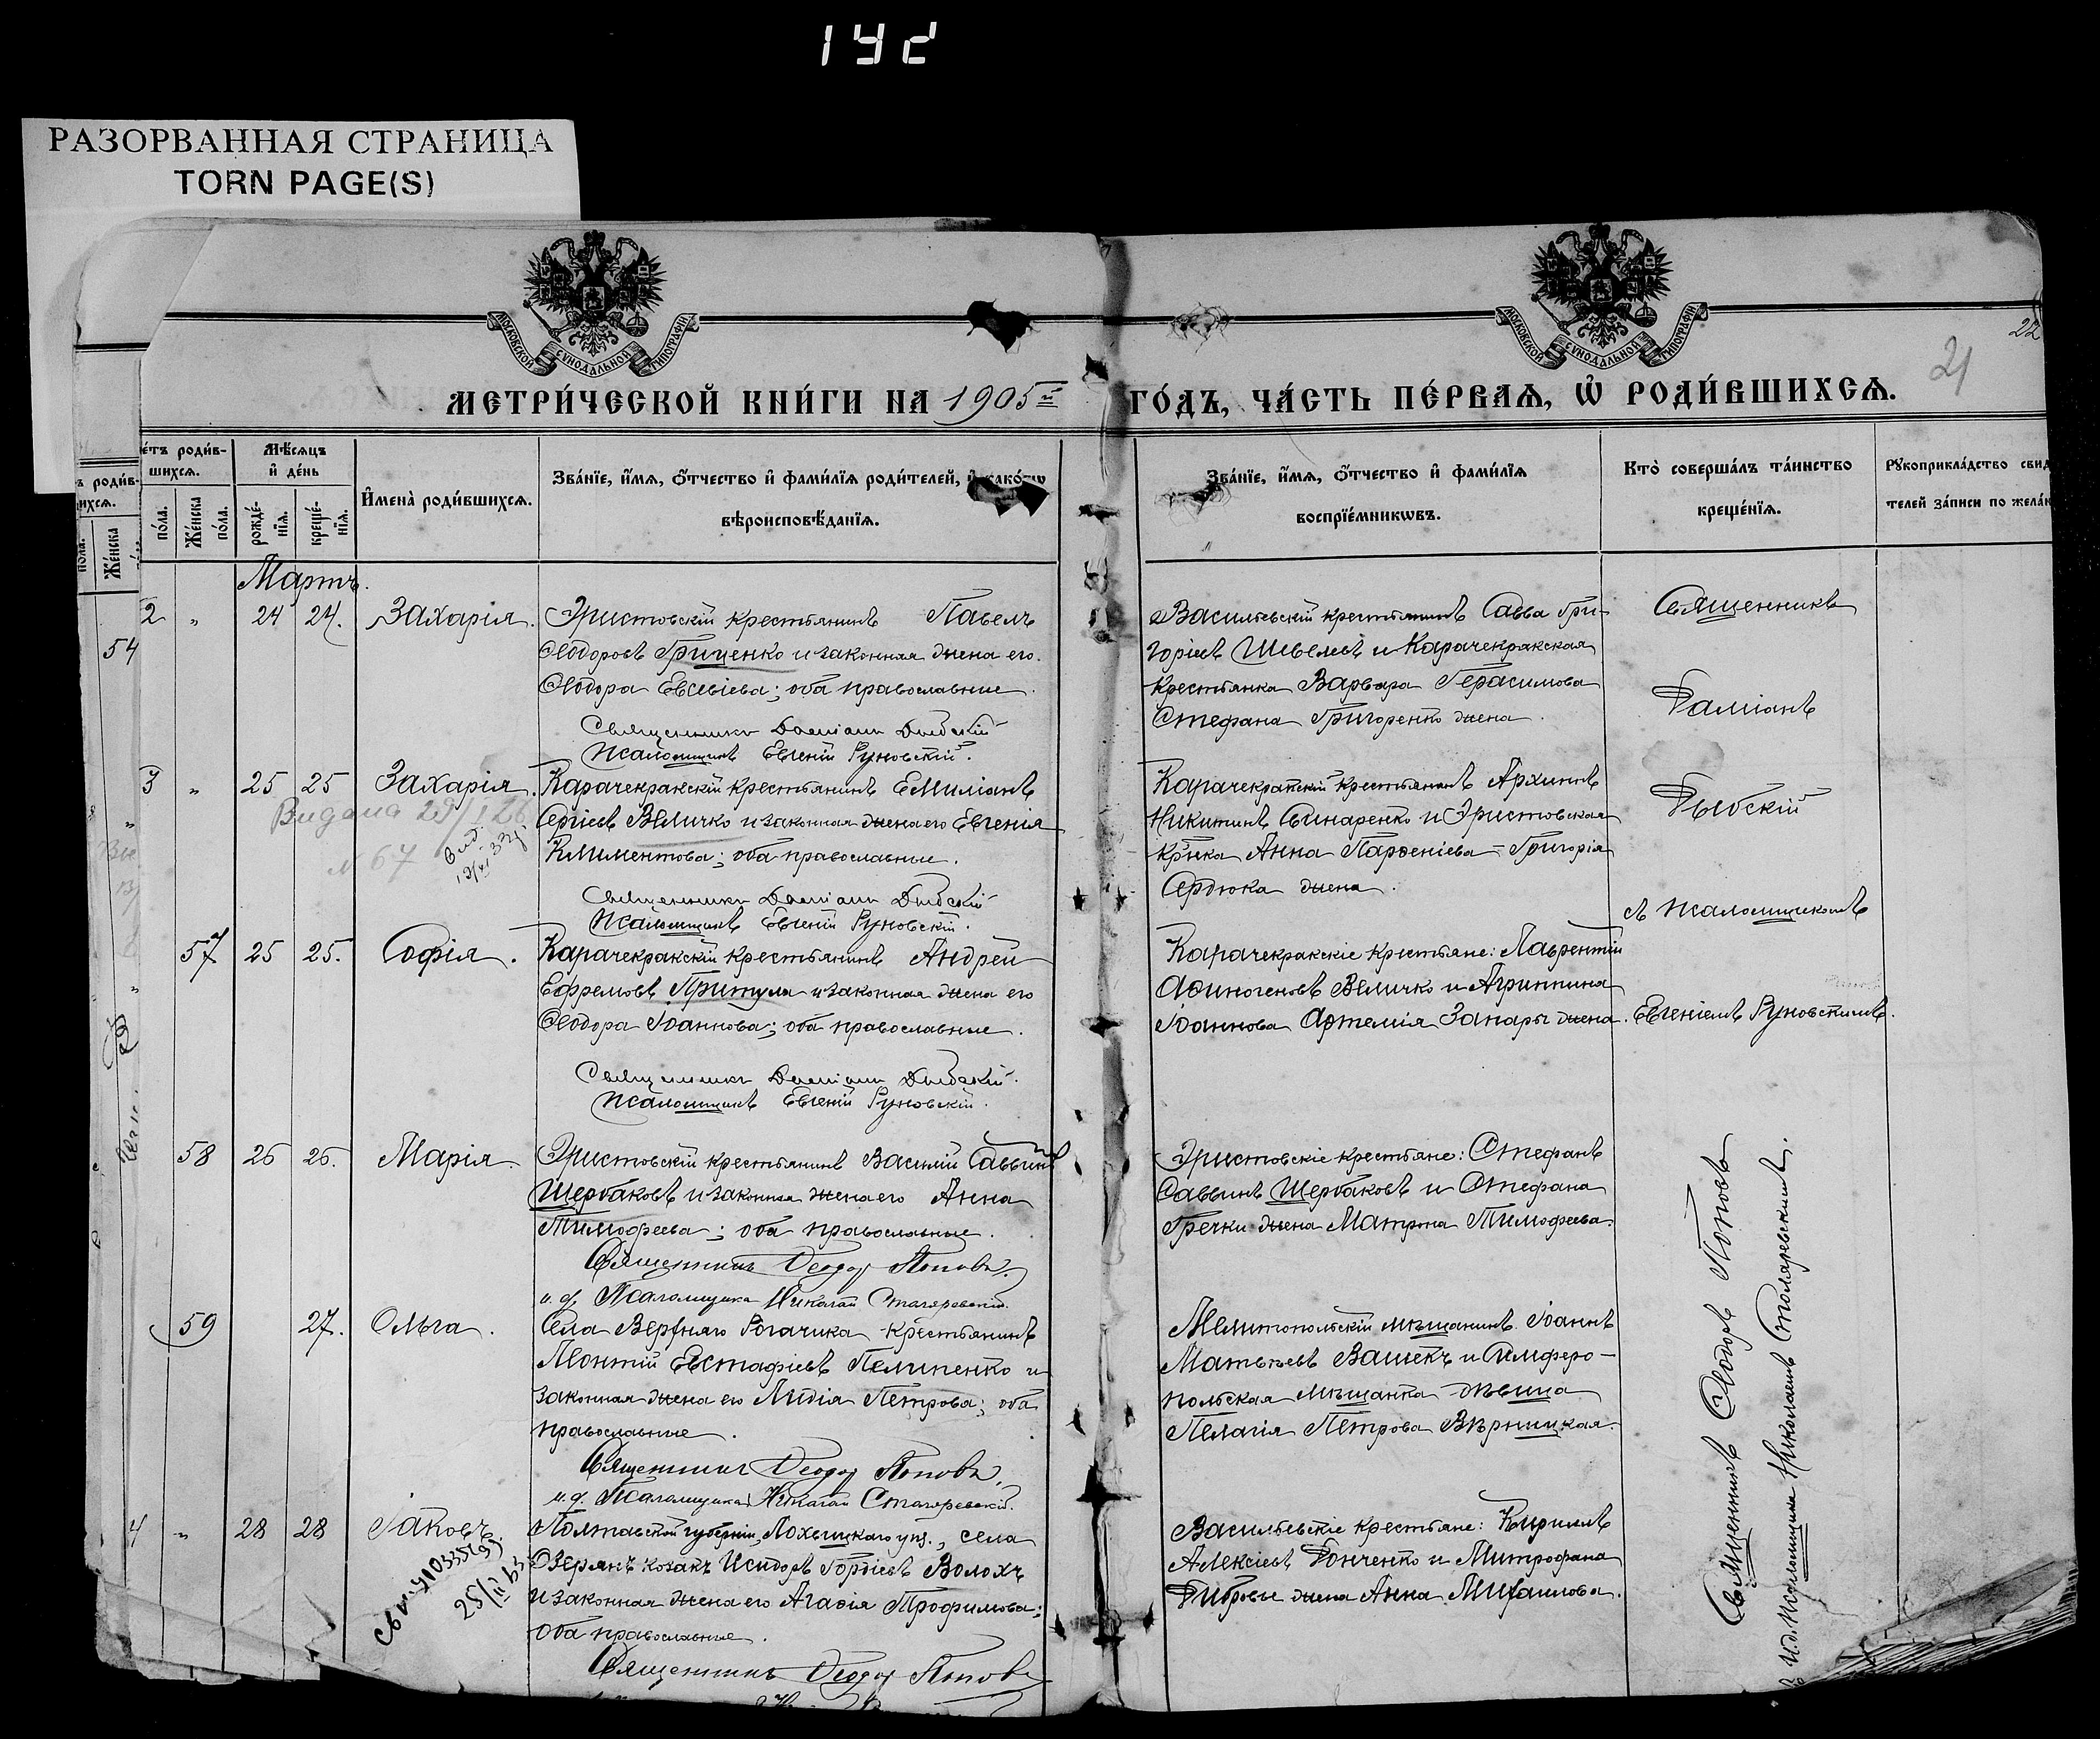 142
РАЗОРВАННАЯ СТРАНИЦА
TORN PAGE(S)
МОСКОВСКОЙ СѴНОДАЛЬНОЙ ТИПОГРАФІИ
МОСКОВСКОЙ СѴНОДАЛЬНОЙ ТИПОГРАФІИ
22
21
МЕТРИ́ЧЕСКОЙ КНИ́ГИ НА 1905й ГО́ДЪ, ЧА́СТЬ ПЕ́РВАѦ, Ѡ҆ РОДИ́ВШИХСѦ.
е́тъ роди́в-
шихсѧ.
по́ла.
Же́нска по́ла.
Мѣ́сѧцъ
и҆ де́нь
рожде́-нїѧ.
креще́-нїѧ.
И҆мена̀ роди́вшихсѧ.
Зва́нїе, и҆́мѧ, ѻ҆́тчество и҆ фами́лїѧ роди́телей, и҆ како́гѡ
вѣроисповѣ́данїѧ.
Зва́нїе, и҆́мѧ, ѻ҆́тчество и҆ фами́лїѧ
воспрїе́мникѡвъ.
Кто̀ соверша́лъ та́инство
креще́нїѧ.
Рꙋкоприкла́дство свид
телей за́писи по жела́н
ъ роди́в-
ихсѧ.
пола.
Же́нска
54
Мартъ.
2 " 24 24. Захарія.
Эристовскій крестьянинъ Павелъ
Ѳеодоровъ Гриценко и законная жена его
Ѳеодора Евсевіева; оба православные.
Священникъ Даміанъ Дыбскій
Псаломщикъ Евгеній Руновскій.
Васильевскій крестьянинъ Савва Гри-
горіевъ Шевелевъ и Карачекракская
крестьянка Варвара Герасимова
Стефана Григоренко жена.
Священникъ
Даміанъ
Дыбскій
съ псаломщикомъ
Евгеніемъ Руновскимъ.
3 " 25 25 Захарія.
Видана 29/I 26
N 67
Карачекракскій крестьянинъ Емиліанъ
Сергіевъ Величко и законная жена его Евгенія
Климентова; оба православные.
Священникъ Даміанъ Дыбскій
Псаломщикъ Евгеній Руновскій.
Карачекракскій крестьянинъ Архиппъ
Никитинъ Слинаренко и Эристовская
кр‑нка Анна Парѳеніева Григорія
Сердюка жена.
57 25 25. Софія.
Карачекракскій крестьянинъ Андрей
Ефремовъ Притула и законная жена его
Ѳеодора Іоаннова; оба православные.
Священникъ Даміанъ Дыбскій.
Псаломщикъ Евгеній Руновскій.
Карачекракскіе крестьяне: Лаврентій
Аѳиногеновъ Величко и Агриппина
Іоаннова Артемія Запары жена.
58 26 26. Марія.
Эристовскій крестьянинъ Василій Саввинъ
Щербаковъ и законная жена его Анна
Тимофеева; оба православные.
Священникъ Ѳеодоръ Поповъ.
и. д. Псаломщика Николай Столяревскій.
Эристовскіе крестьяне: Стефанъ
Саввинъ Щербаковъ и Стефана
Гречки жена Матрона Тимофеева.
Священникъ Ѳеодоръ Поповъ
И.д. Псаломщика Николаемъ Столяревскимъ.
59 27. Ольга.
Села Верхняго Рогачика крестьянинъ
Леонтій Евстафіевъ Пелипенко и
законная жена его Лидія Петрова; оба
православные.
Священникъ Ѳеодоръ Поповъ.
и. д. Псаломщика Николай Столяревскій.
Мелитопольскій мѣщанинъ Іоаннъ
Матвѣевъ Вашекъ и Симферо-
польская мѣщанка дѣвица
Пелагія Петрова Вѣрницкая.
4 " 28 28 Іаковъ.
Полтавской губерніи, Лохвицкаго уѣз., села
Озерянъ козакъ Исидоръ Гордіевъ Волохъ
и законная жена его Агафія Трофимова;
оба православные.
Священникъ Ѳеодоръ Поповъ
Васильевскіе крестьяне: Кириллъ
Алексіевъ Донченко и Митрофана
Дибровы жена Анна Михаилова.